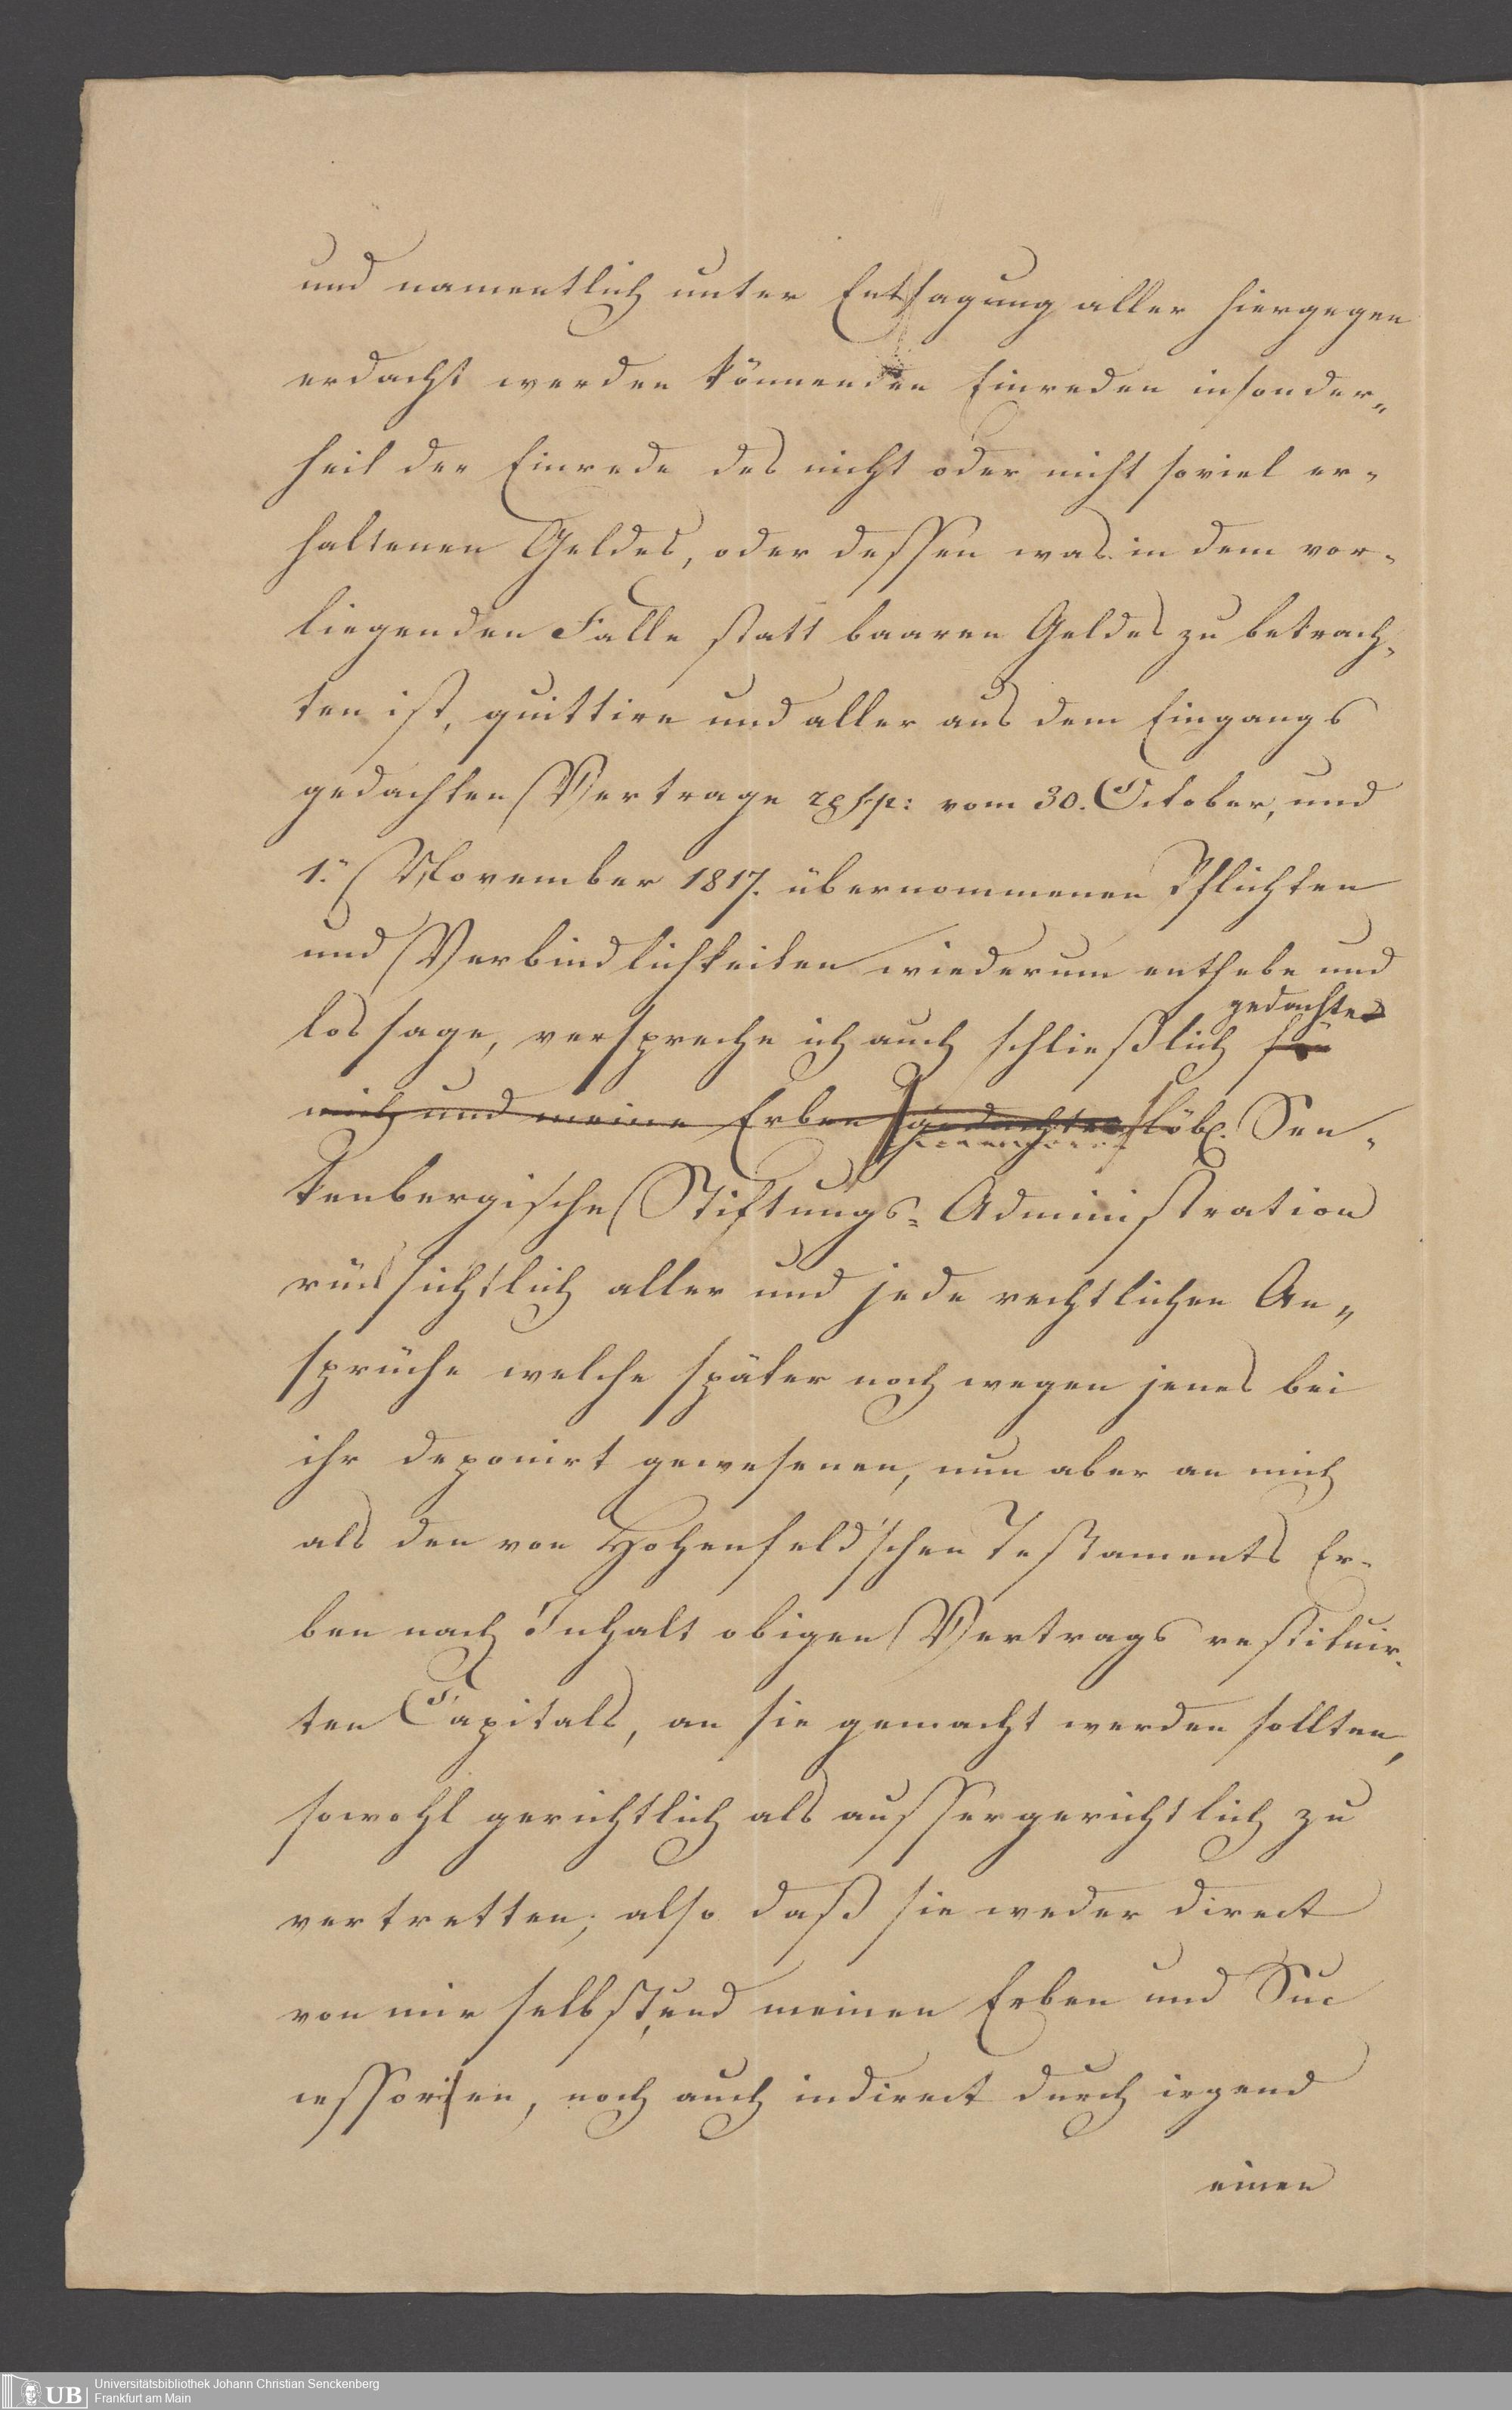 und namentlich unter Entsagung aller hiergegen
erdacht werden könnenden Einreden insonder„
heit der Einrede des nicht oder nicht soviel er-
haltenen Geldes, oder dessen was in dem vor-
liegenden Falle statt baaren Geldes zu betrach-
ten ist, quittire und aller aus dem Eingangs
gedachten Vertrage resp: vom 30. October, und
1. November 1817. übernommenen Pflichten
und Verbindlichkeiten wiederum enthebe und
gedachte
lossage, verspreche ich auch schließlich für
mich und meine Erben gedachte löbl. Sen-
kenbergische Stiftungs-Administration
rücksichtlich aller und jede rechtlichen An„
sprüche welche später noch wegen jenes bei
ihr deponirt gewesenen, nun aber an mich
als den von Hohenfeld'schen Testaments Er-
ben nach Inhalt obigen Vertrags restituir-
ten Capitals, an sie gemacht werden sollten,
sowohl gerichtlich als aussergerichtlich zu
vertretten; also daß sie weder direct
von mir selbst, und meinen Erben und Suc
cessorien, noch auch indirect durch irgend
einen
UB
Universitätsbibliothek Johann Christian Senckenberg
Frankfurt am Main